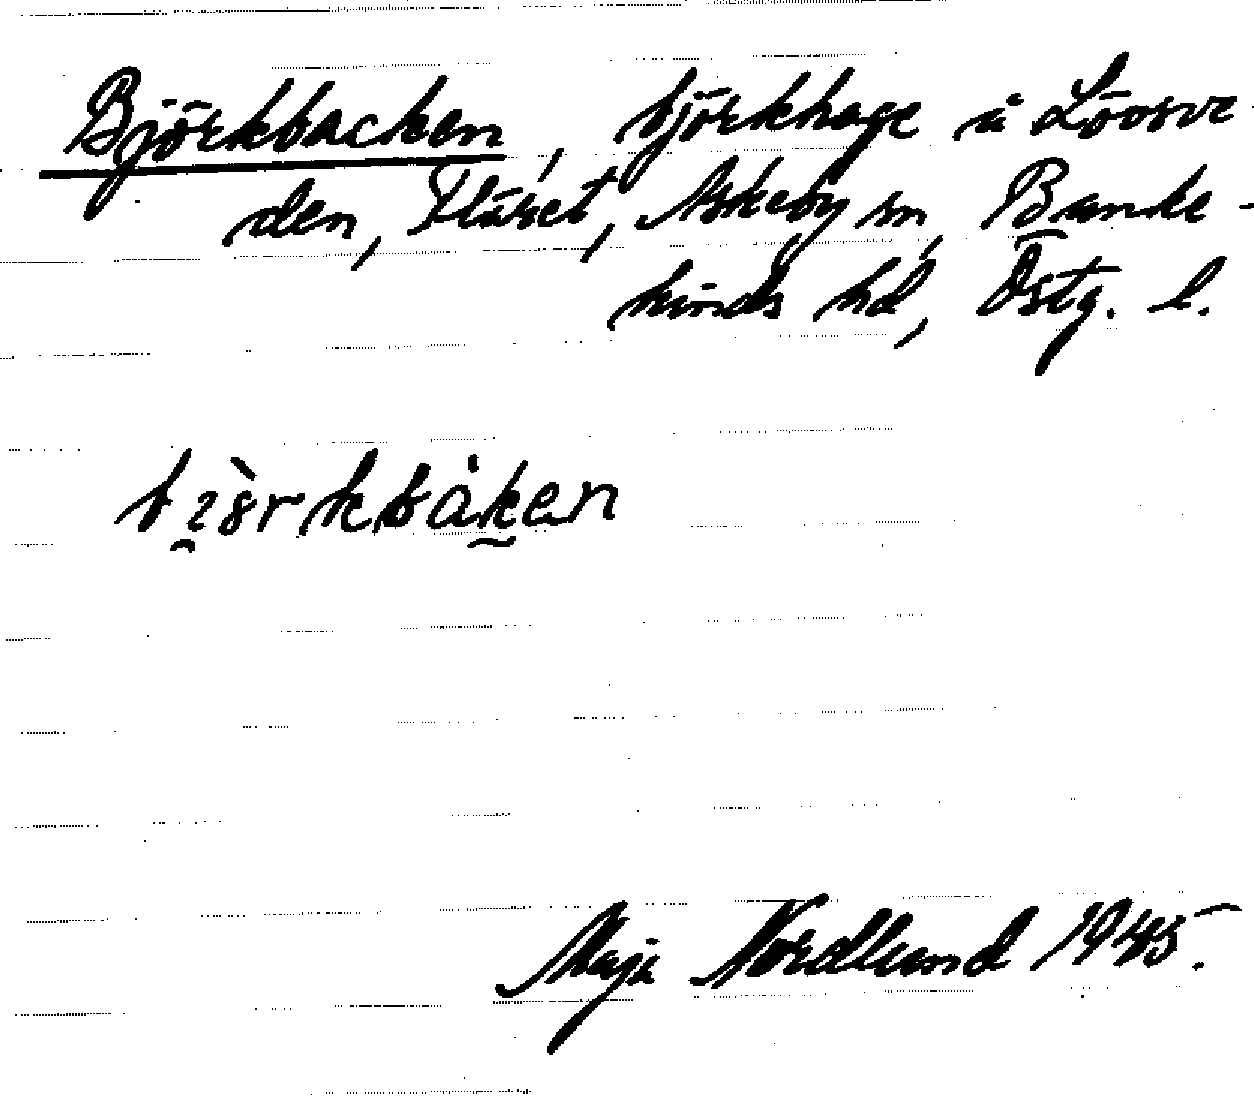 Björkbacken, björkhage å Löosve-
den, Fläret, Askeby sn, Banke-
kinds hd, Östg. l.
Maja Nordlund 1945.